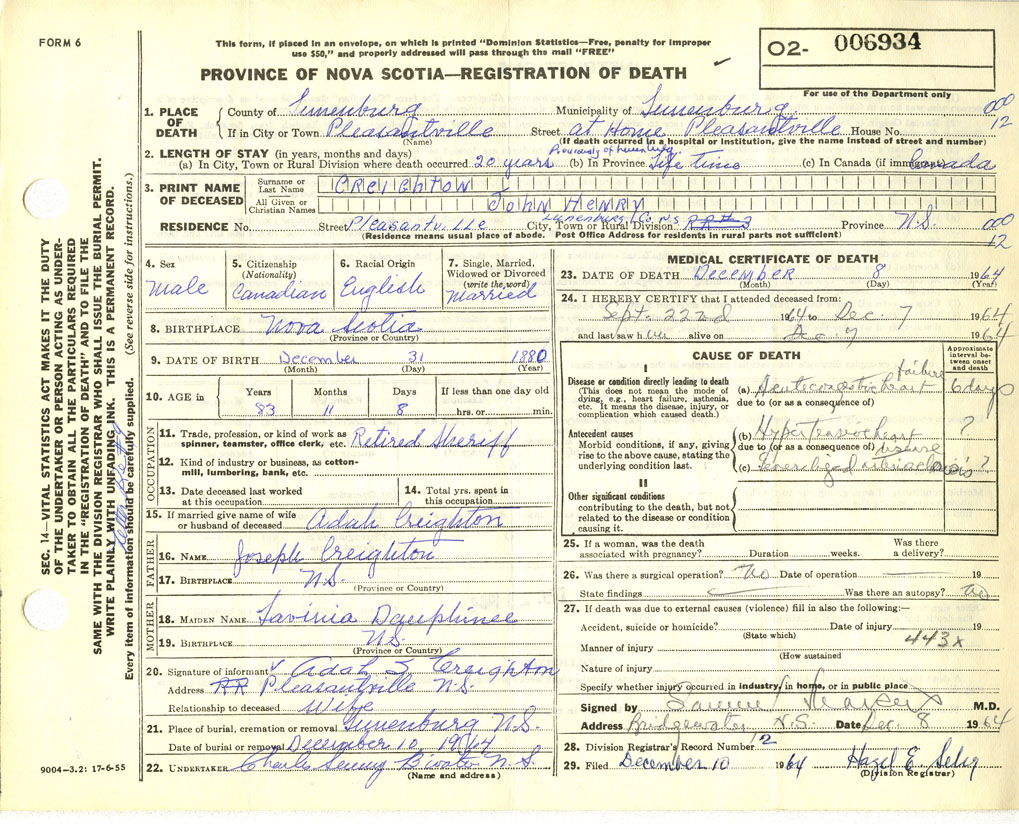 FORM 6
This form, if placed in an envelope, on which is printed "Dominion Statistics—Free, penalty for improper
use $50," and properly addressed will pass through the mail "FREE"
02- 006934
PROVINCE OF NOVA SCOTIA—REGISTRATION OF DEATH
For use of the Department only
1. PLACE OF DEATH
County of Lunenburg Municipality of Lunenburg 000
If in City or Town Pleasantville Street at Home Pleasantville House No. 12
(Name) (If death occurred in a hospital or institution, give the name instead of street and number)
2. LENGTH OF STAY (in years, months and days) Previously of Lunenburg
(a) In City, Town or Rural Division where death occurred 20 years (b) In Province Life time (c) In Canada (if immigrant) Canada
3. PRINT NAME OF DECEASED
Surname or Last Name CREIGHTON
All Given or Christian Names JOHN HENRY
Lunenburg Co. N.S.
RESIDENCE No. Street Pleasantville City, Town or Rural Division RR#3 Province N.S. 000
(Residence means usual place of abode. Post Office Address for residents in rural parts not sufficient) 12
4. Sex Male
5. Citizenship (Nationality) Canadian
6. Racial Origin English
7. Single, Married, Widowed or Divorced (write the word) Married
8. BIRTHPLACE Nova Scotia
(Province or Country)
9. DATE OF BIRTH December 31 1880
(Month) (Day) (Year)
10. AGE in Years Months Days If less than one day old
83 11 8 hrs. or min.
OCCUPATION
11. Trade, profession, or kind of work as spinner, teamster, office clerk, etc. Retired Sheriff
12. Kind of industry or business, as cotton-mill, lumbering, bank, etc.
13. Date deceased last worked at this occupation
14. Total yrs. spent in this occupation
15. If married give name of wife or husband of deceased Adah Creighton
FATHER
16. NAME Joseph Creighton
17. BIRTHPLACE N.S.
(Province or Country)
MOTHER
18. MAIDEN NAME Lavinia Dauphinee
19. BIRTHPLACE N.S.
(Province or Country)
20. Signature of informant Adah S Creighton
Address RR Pleasantville N.S.
Relationship to deceased Wife
21. Place of burial, cremation or removal Lunenburg N.S.
Date of burial or removal December 10 1964
22. UNDERTAKER Charles B'water N.S.
(Name and address)
9004—3.2: 17-6-55
MEDICAL CERTIFICATE OF DEATH
23. DATE OF DEATH December 8 1964
(Month) (Day) (Year)
24. I HEREBY CERTIFY that I attended deceased from:
Sept. 22nd 1964 to Dec. 7 1964
and last saw h im alive on Dec 7 1964
CAUSE OF DEATH
Approximate interval between onset and death
I
Disease or condition directly leading to death
(This does not mean the mode of dying, e.g., heart failure, asthenia, etc. It means the disease, injury, or complication which caused death.)
(a) Acute congestive heart failure 6 days
due to (or as a consequence of)
Antecedent causes
Morbid conditions, if any, giving rise to the above cause, stating the underlying condition last.
(b) Hypertensive heart disease ?
due to (or as a consequence of)
(c) Generalized arteriosclerosis ?
II
Other significant conditions
contributing to the death, but not related to the disease or condition causing it.
25. If a woman, was the death associated with pregnancy? Duration weeks. Was there a delivery?
26. Was there a surgical operation? No Date of operation 19
State findings Was there an autopsy? No
27. If death was due to external causes (violence) fill in also the following:—
Accident, suicide or homicide? Date of injury 19
(State which) 443x
Manner of injury
(How sustained
Nature of injury
Specify whether injury occurred in industry, in home, or in public place
Signed by M.D.
Address Bridgewater, N.S. Date Dec. 8 1964
28. Division Registrar's Record Number 12
29. Filed December 10 1964 Hazel E. Selig
(Division Registrar)
SEC. 14—VITAL STATISTICS ACT MAKES IT THE DUTY
OF THE UNDERTAKER OR PERSON ACTING AS UNDER-
TAKER TO OBTAIN ALL THE PARTICULARS REQUIRED
IN THE "REGISTRATION OF DEATH" AND TO FILE THE
SAME WITH THE DIVISION REGISTRAR WHO SHALL ISSUE THE BURIAL PERMIT.
WRITE PLAINLY WITH UNFADING INK. THIS IS A PERMANENT RECORD.
Every item of information should be carefully supplied. (See reverse side for instructions.)